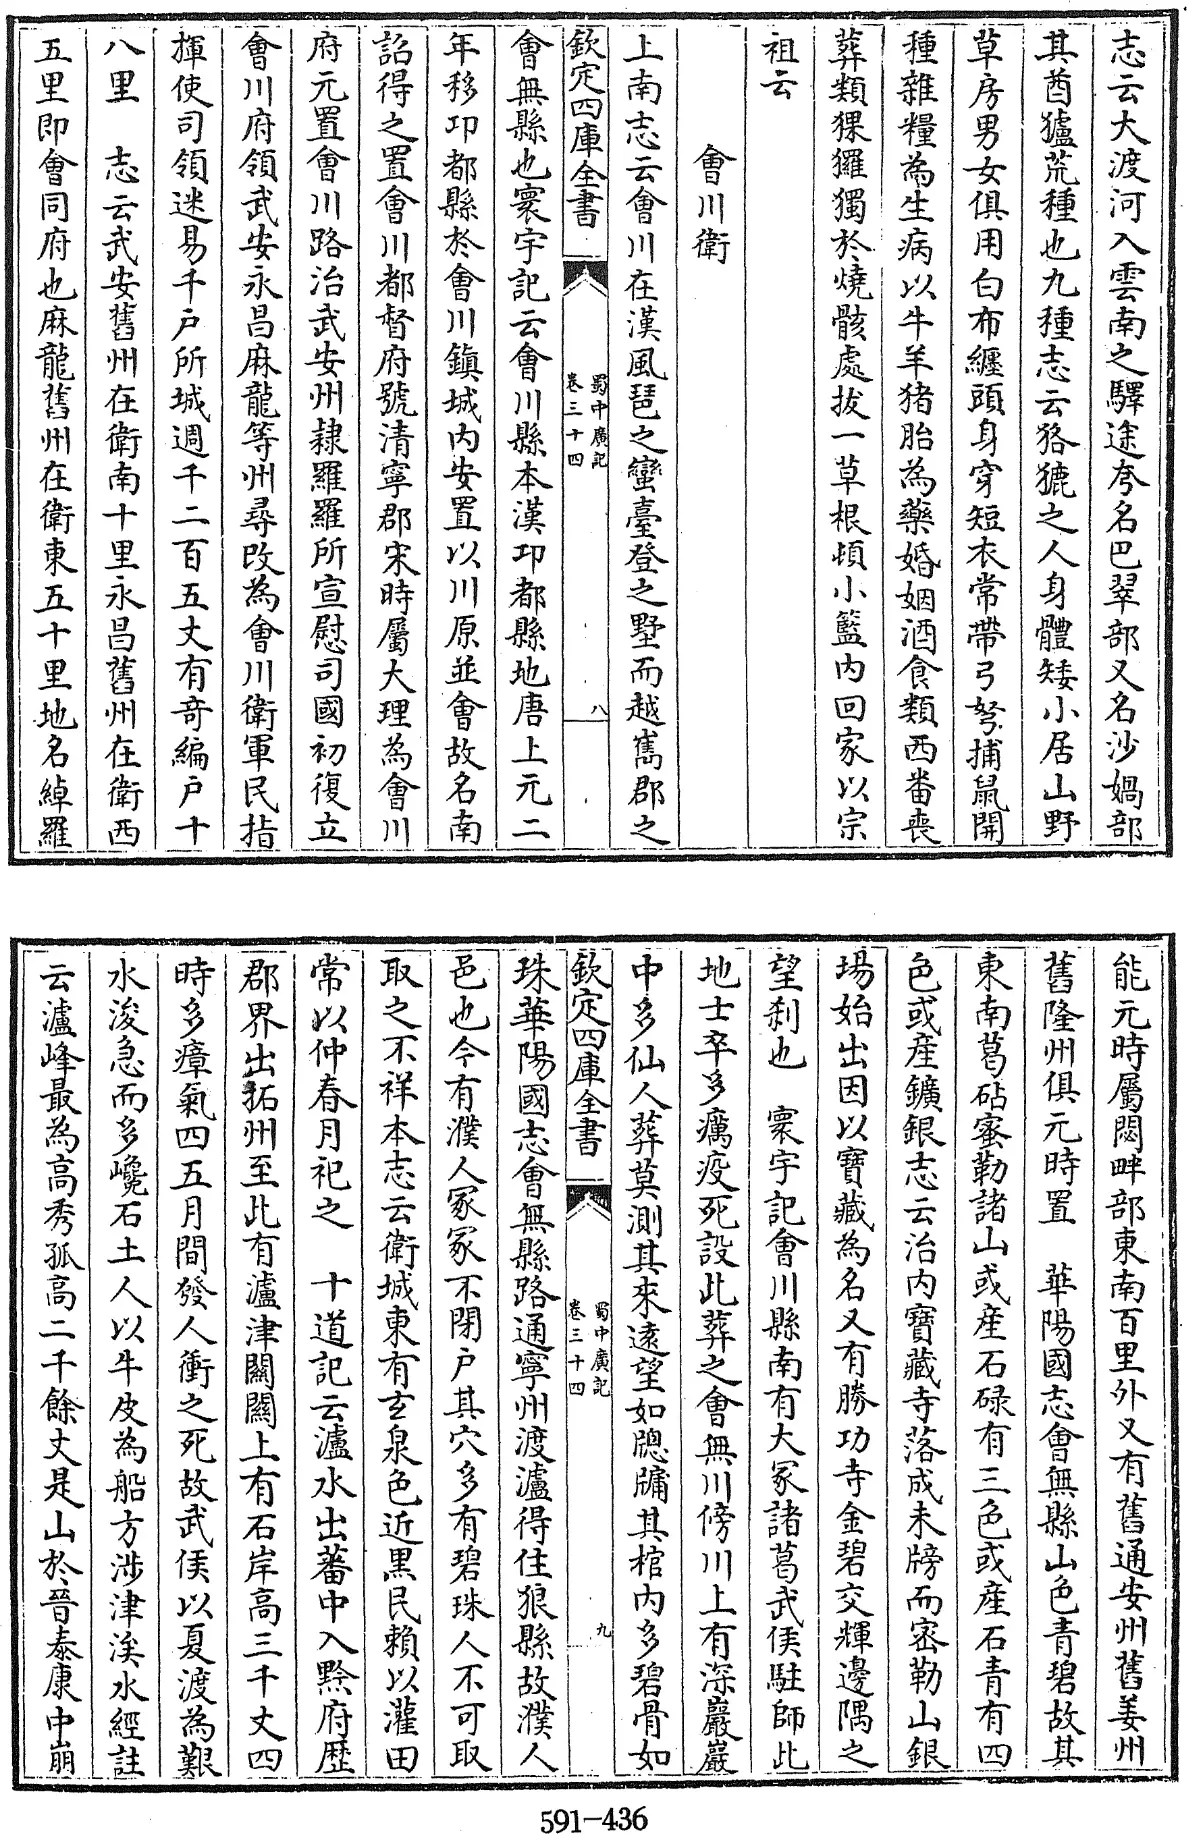 志云大渡河入雲南之驛途夸名巴翠部又名沙媧部
其酋㹧荒種也九種志云狢㹿之人身體矮小居山野
草房男女俱用白布纏頭身穿短衣常帶弓弩捕鼠開
種雜糧為生病以牛羊猪胎為藥婚姻酒食類西畨喪
葬類猓玀獨於燒骸處拔一草根頓小籃内回家以宗
祖云
會川衛
上南志云會川在漢風琶之蠻臺登之墅而越嶲郡之
欽定四庫全書
蜀中廣記
卷三十四
八
會無縣也寰宇記云會川縣本漢卭都縣地唐上元二
年移卭都縣於會川鎮城内安置以川原並會故名南
詔得之置會川都督府號清寧郡宋時屬大理為會川
府元置會川路治武安州隸羅羅所宣慰司國初復立
會川府領武安永昌麻龍等州尋改為會川衛軍民指
揮使司領迷易千戶所城週千二百五丈有奇編户十
八里　志云武安舊州在衛南十里永昌舊州在衛西
五里即會同府也麻龍舊州在衛東五十里地名綽羅
能元時屬閟畔部東南百里外又有舊通安州舊姜州
舊隆州俱元時置　華陽國志會無縣山色青碧故其
東南葛砧蜜勒諸山或産石碌有三色或産石青有四
色或産鑛銀志云治内寶藏寺落成未牓而密勒山銀
場始出因以寶藏為名又有勝功寺金碧交輝邊隅之
望刹也　寰宇記會川縣南有大冢諸葛武侯駐師此
地士卒多癘疫死設此葬之會無川傍川上有深巖巖
中多仙人葬莫測其來遠望如牎牖其棺内多碧骨如
欽定四庫全書
蜀中廣記
卷三十四
九
珠華陽國志會無縣路通寧州渡瀘得住狼縣故濮人
邑也今有濮人冢冢不閉戸其穴多有碧珠人不可取
取之不祥本志云衛城東有玄泉色近黑民賴以灌田
常以仲春月祀之　十道記云瀘水出蕃中入黔府歴
郡界出拓州至此有瀘津關關上有石岸高三千丈四
時多瘴氣四五月間發人衝之死故武侯以夏渡為艱
水浚急而多巉石土人以牛皮為船方涉津涘水經註
云瀘峰最為高秀孤高二千餘丈是山於晉泰康中崩
591-436